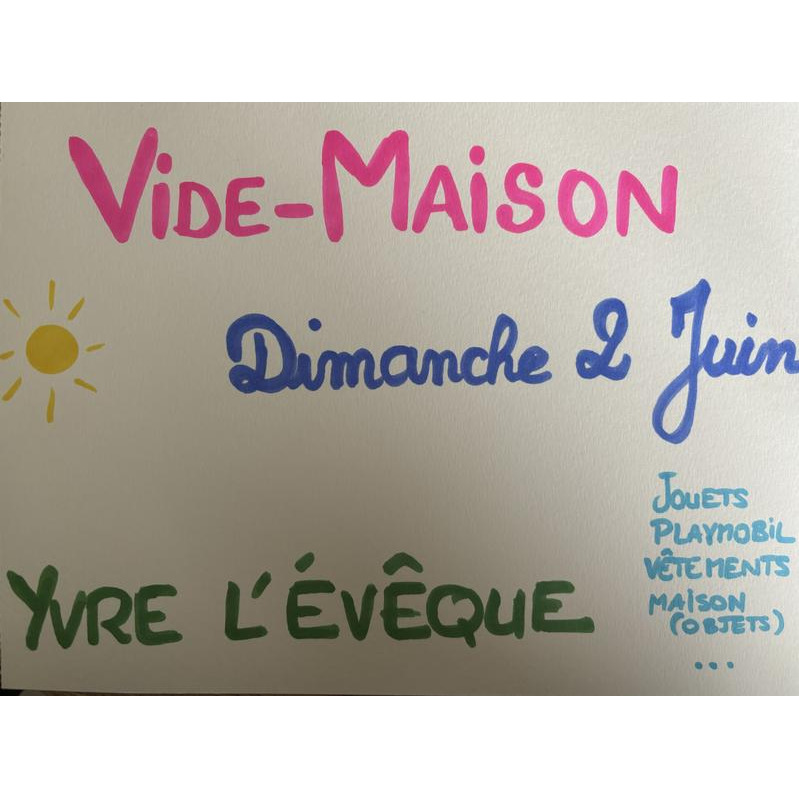 VIDE-MAISON
Dimanche 2 Juin
JOUETS
PLAYMOBIL
VÊTEMENTS
MAISON
(OBJETS)
...
YVRE L'ÉVÊQUE